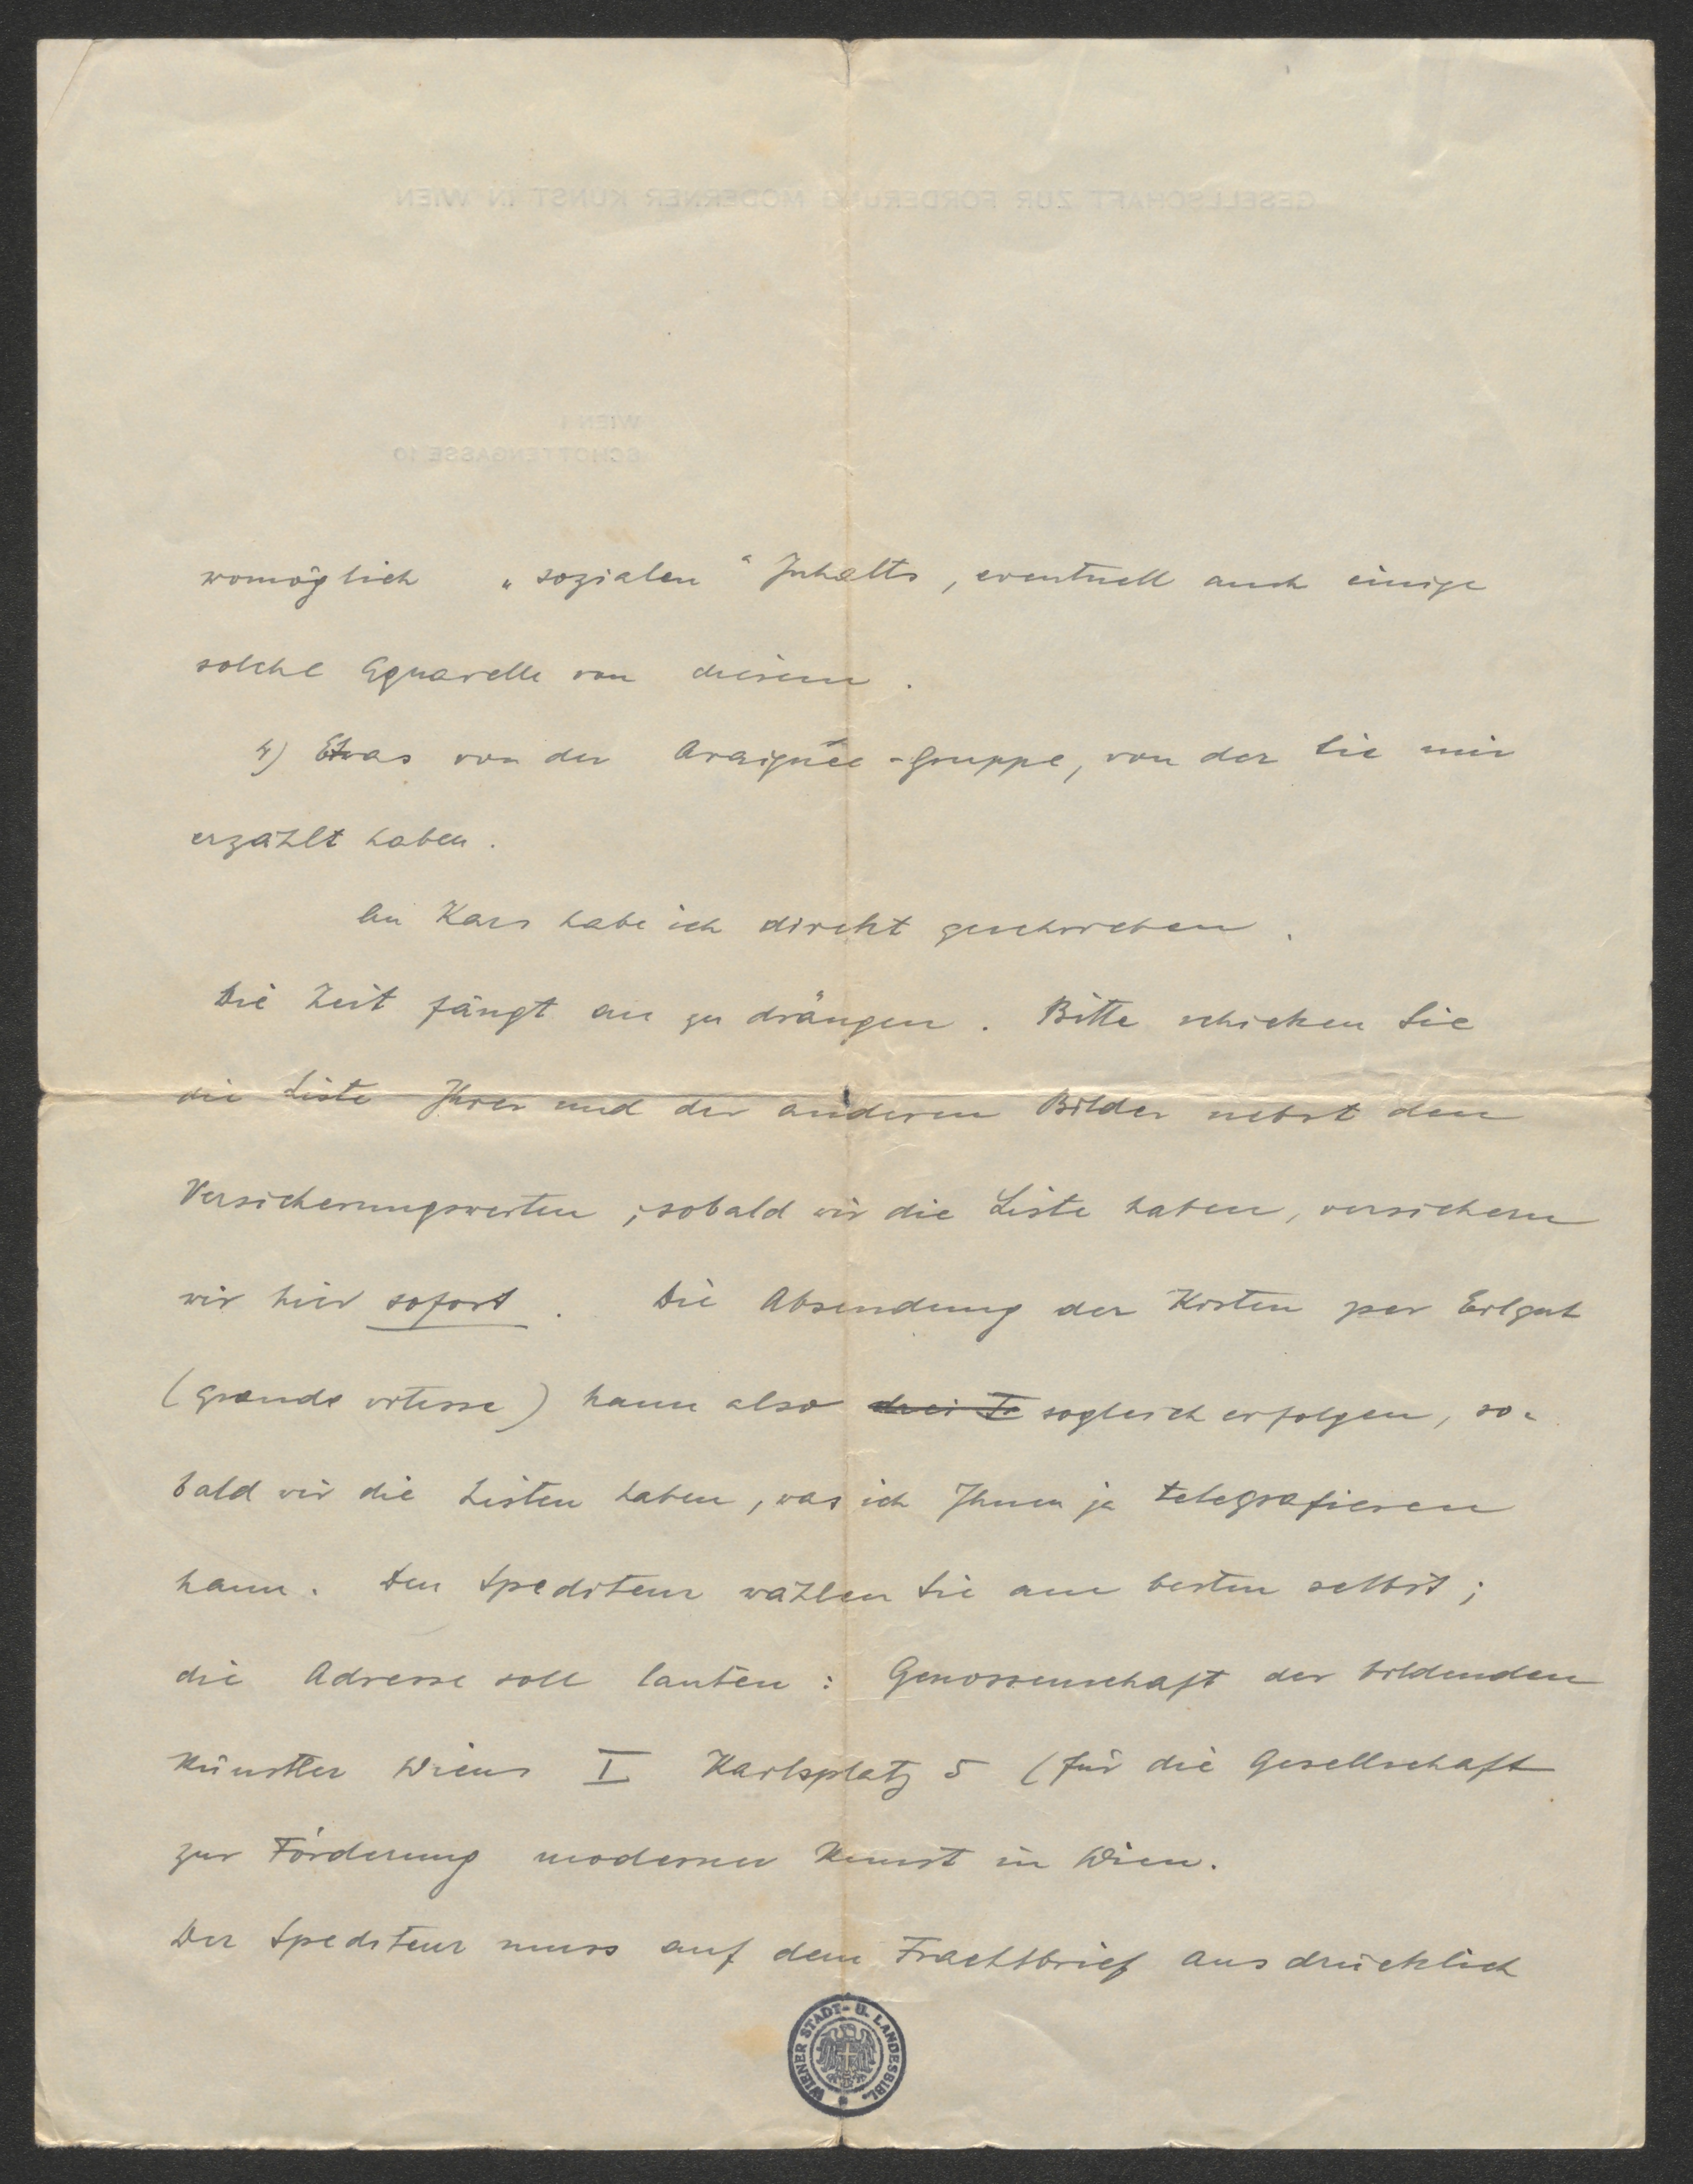 womöglich „sozialen“ Inhalts, eventuell auch einige
solche Aquarelle von diesem.
4) Etwas von der Araignée-Gruppe, von der Sie mir
erzählt haben.
An Kars habe ich direkt geschrieben.
Die Zeit fängt an zu drängen. Bitte schicken Sie
die Liste Ihrer und der anderen Bilder nebst den
Versicherungswerten; sobald wir die Liste haben, versichern
wir hier sofort. Die Absendung der Kisten per Eilgut
(grande vitesse) kann also drei T sogleich erfolgen, so-
bald wir die Listen haben, was ich Ihnen ja telegrafieren
kann. Den Spediteur wählen Sie am besten selbst;
die Adresse soll lauten: Genossenschaft der bildenden
Künstler Wiens I Karlsplatz 5 (für die Gesellschaft
zur Förderung moderner Kunst in Wien.
Der Spediteur muss auf dem Frachtbrief ausdrücklich
WIENER STADT- U. LANDESBIBL.
GESELLSCHAFT ZUR FÖRDERUNG MODERNER KUNST IN WIEN
WIEN I
SCHOTTENGASSE 10